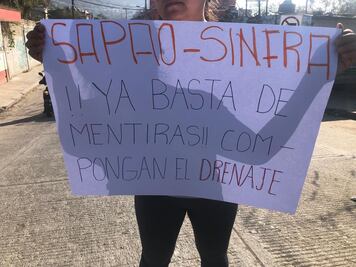 SAPAO-SINFRA
¡¡YA BASTA DE
MENTIRAS!! COM-
PONGAN EL DRENAJE